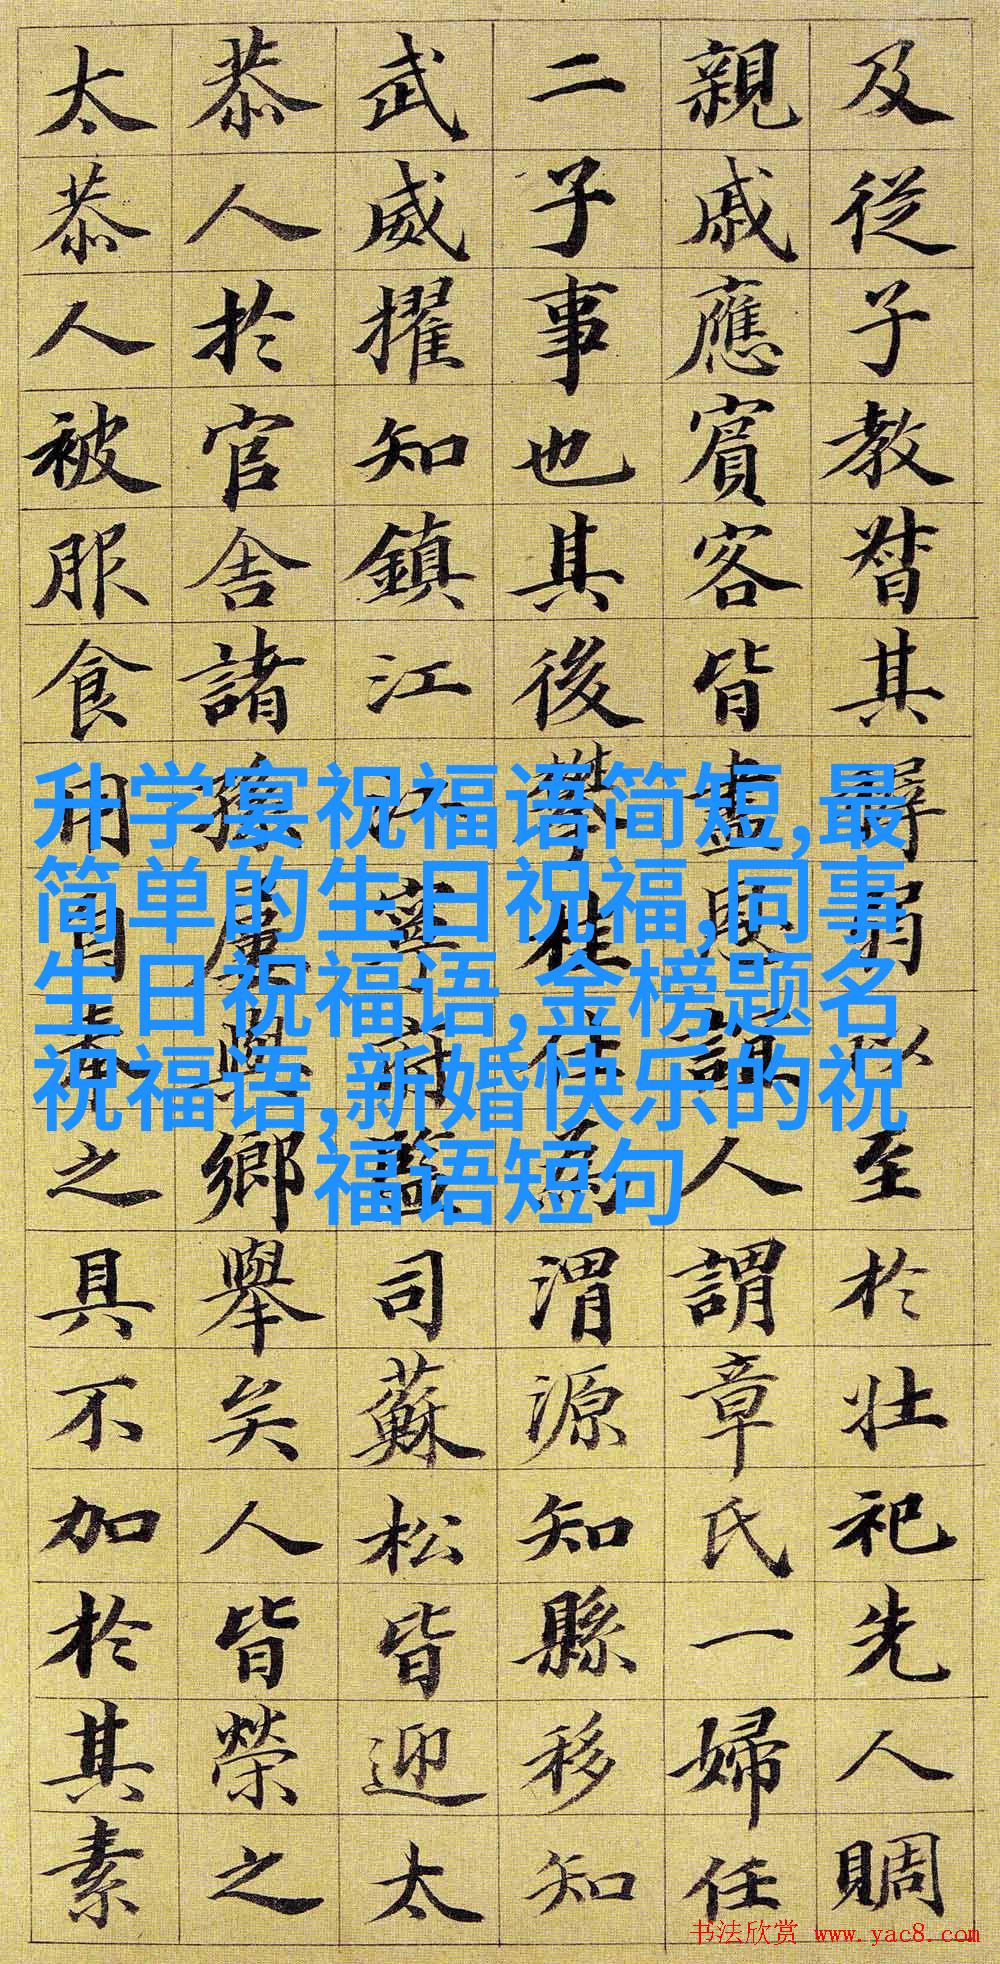 及從子教督其弱以至於壯祀先人賙
親戚應賓客皆盡人謂章氏一婦任
二子事也其後攀桂仕為渭源知縣移知
武威擢知鎮江江寧府監司蘇松皆迎太
恭人於官舍諸孫屢與鄉舉矣人皆榮之
太恭人被服食用自奉之具不加於其素
升学宴祝福语简短,最
简单的生日祝福,同事
生日祝福语,金榜题名
祝福语,新婚快乐的祝
福语短句
书法欣赏 www.yac8.com